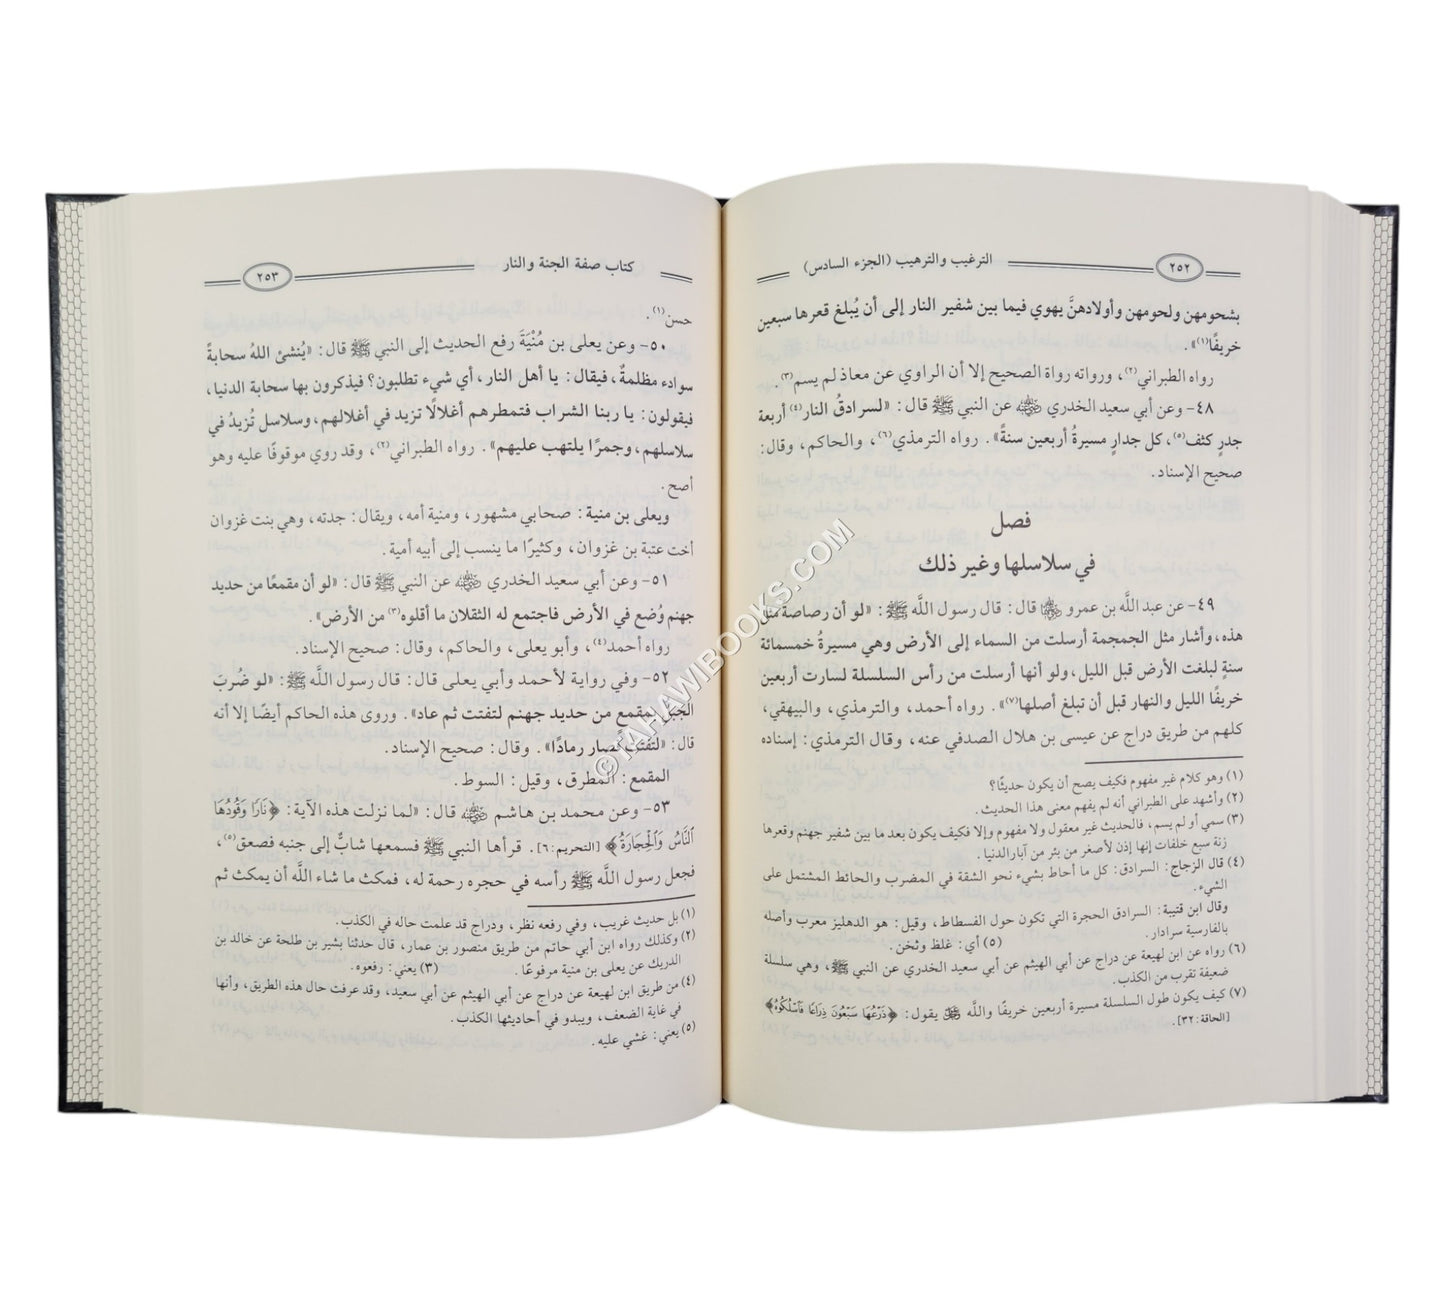 ٢٥٢
الترغيب والترهيب (الجزء السادس)
بشحومهن ولحومهن وأولادهنَّ يهوي فيما بين شفير النار إلى أن يُبلغ قعرها سبعين
خريفًا(١)».
رواه الطبراني(٢)، ورواته رواة الصحيح إلا أن الراوي عن معاذ لم يسم(٣).
٤٨- وعن أبي سعيد الخدري رضي الله عنه عن النبي ﷺ قال: «لسرادقُ النار(٤) أربعة
جدرٍ كثف(٥)، كل جدارٍ مسيرةُ أربعين سنةً». رواه الترمذي(٦)، والحاكم، وقال:
صحيح الإسناد.
فصل
في سلاسلها وغير ذلك
٤٩- عن عبد اللَّه بن عمرو رضي الله عنهما قال: قال رسول اللَّه ﷺ: «لو أن رصاصة مثل
هذه، وأشار مثل الجمجمة أرسلت من السماء إلى الأرض وهي مسيرةُ خمسمائة
سنةٍ لبلغت الأرض قبل الليل، ولو أنها أرسلت من رأس السلسلة لسارت أربعين
خريفًا الليل والنهار قبل أن تبلغ أصلها(٧)». رواه أحمد، والترمذي، والبيهقي،
كلهم من طريق دراج عن عيسى بن هلال الصدفي عنه، وقال الترمذي: إسناده
(١) وهو كلام غير مفهوم فكيف يصح أن يكون حديثًا؟
(٢) وأشهد على الطبراني أنه لم يفهم معنى هذا الحديث.
(٣) سمي أو لم يسم، فالحديث غير معقول ولا مفهوم وإلا فكيف يكون بعد ما بين شفير جهنم وقعرها
زنة سبع خلفات إنها إذن لأصغر من بئر من آبار الدنيا.
(٤) قال الزجاج: السرادق: كل ما أحاط بشيء نحو الشقة في المضرب والحائط المشتمل على
الشيء.
وقال ابن قتيبة: السرادق الحجرة التي تكون حول الفسطاط، وقيل: هو الدهليز معرب وأصله
بالفارسية سرادار. (٥) أي: غلظ وثخن.
(٦) رواه عن ابن لهيعة عن دراج عن أبي الهيثم عن أبي سعيد الخدري عن النبي ﷺ، وهي سلسلة
ضعيفة تقرب من الكذب.
(٧) كيف يكون طول السلسلة مسيرة أربعين خريفًا واللَّه ﷻ يقول: ﴿ذَرْعُهَا سَبْعُونَ ذِرَاعًا فَاسْلُكُوهُ﴾
[الحاقة: ٣٢].
كتاب صفة الجنة والنار
٢٥٣
حسن(١).
٥٠- وعن يعلى بن مُنْيَةَ رفع الحديث إلى النبي ﷺ قال: «يُنشئ اللهُ سحابةً
سوداء مظلمةٌ، فيقال: يا أهل النار، أي شيء تطلبون؟ فيذكرون بها سحابة الدنيا،
فيقولون: يا ربنا الشراب فتمطرهم أغلالًا تزيد في أغلالهم، وسلاسل تُزيدُ في
سلاسلهم، وجمرًا يلتهب عليهم». رواه الطبراني(٢)، وقد روي موقوفًا عليه وهو
أصح.
ويعلى بن منية: صحابي مشهور، ومنية أمه، ويقال: جدته، وهي بنت غزوان
أخت عتبة بن غزوان، وكثيرًا ما ينسب إلى أبيه أمية.
٥١- وعن أبي سعيد الخدري رضي الله عنه عن النبي ﷺ قال: «لو أن مقمعًا من حديد
جهنم وُضع في الأرض فاجتمع له الثقلان ما أقلوه(٣) من الأرض».
رواه أحمد(٤)، وأبو يعلى، والحاكم، وقال: صحيح الإسناد.
٥٢- وفي رواية لأحمد وأبي يعلى قال: قال رسول اللَّه ﷺ: «لو ضُربَ
الجبل بمقمع من حديد جهنم لتفتت ثم عاد». وروى هذه الحاكم أيضًا إلا أنه
قال: «لتفتت فصار رمادًا». وقال: صحيح الإسناد.
المقمع: المطرق، وقيل: السوط.
٥٣- وعن محمد بن هاشم رضي الله عنه قال: «لما نزلت هذه الآية: ﴿نَارًا وَقُودُهَا
النَّاسُ وَالْحِجَارَةُ﴾ [التحريم: ٦]. قرأها النبي ﷺ فسمعها شابٌّ إلى جنبه فصعق(٥)،
فجعل رسول اللَّه ﷺ رأسه في حجره رحمة له، فمكث ما شاء اللَّه أن يمكث ثم
(١) بل حديث غريب، وفي رفعه نظر، ودراج قد علمت حاله في الكذب.
(٢) وكذلك رواه ابن أبي حاتم من طريق منصور بن عمار، قال حدثنا بشير بن طلحة عن خالد بن
الدريك عن يعلى بن منية مرفوعًا. (٣) يعني: رفعوه.
(٤) من طريق ابن لهيعة عن دراج عن أبي الهيثم عن أبي سعيد، وقد عرفت حال هذه الطريق، وأنها
في غاية الضعف، ويبدو في أحاديثها الكذب.
(٥) يعني: غشي عليه.
© TAHAWIBOOKS.COM